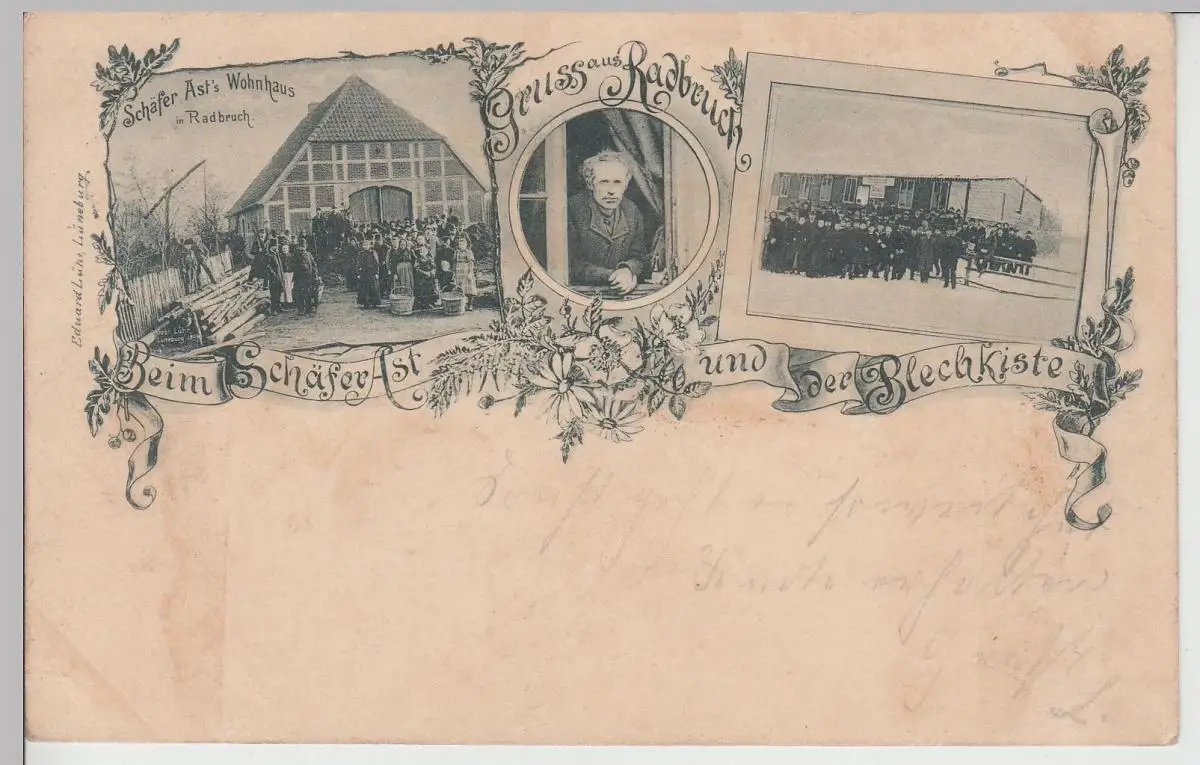 Schäfer Ast's Wohnhaus
in Radbruch.
Gruss aus Radbruch
Eduard Lühr, Lüneburg.
Beim Schäfer Ast und der Blechkiste
Heute erhalten
L.